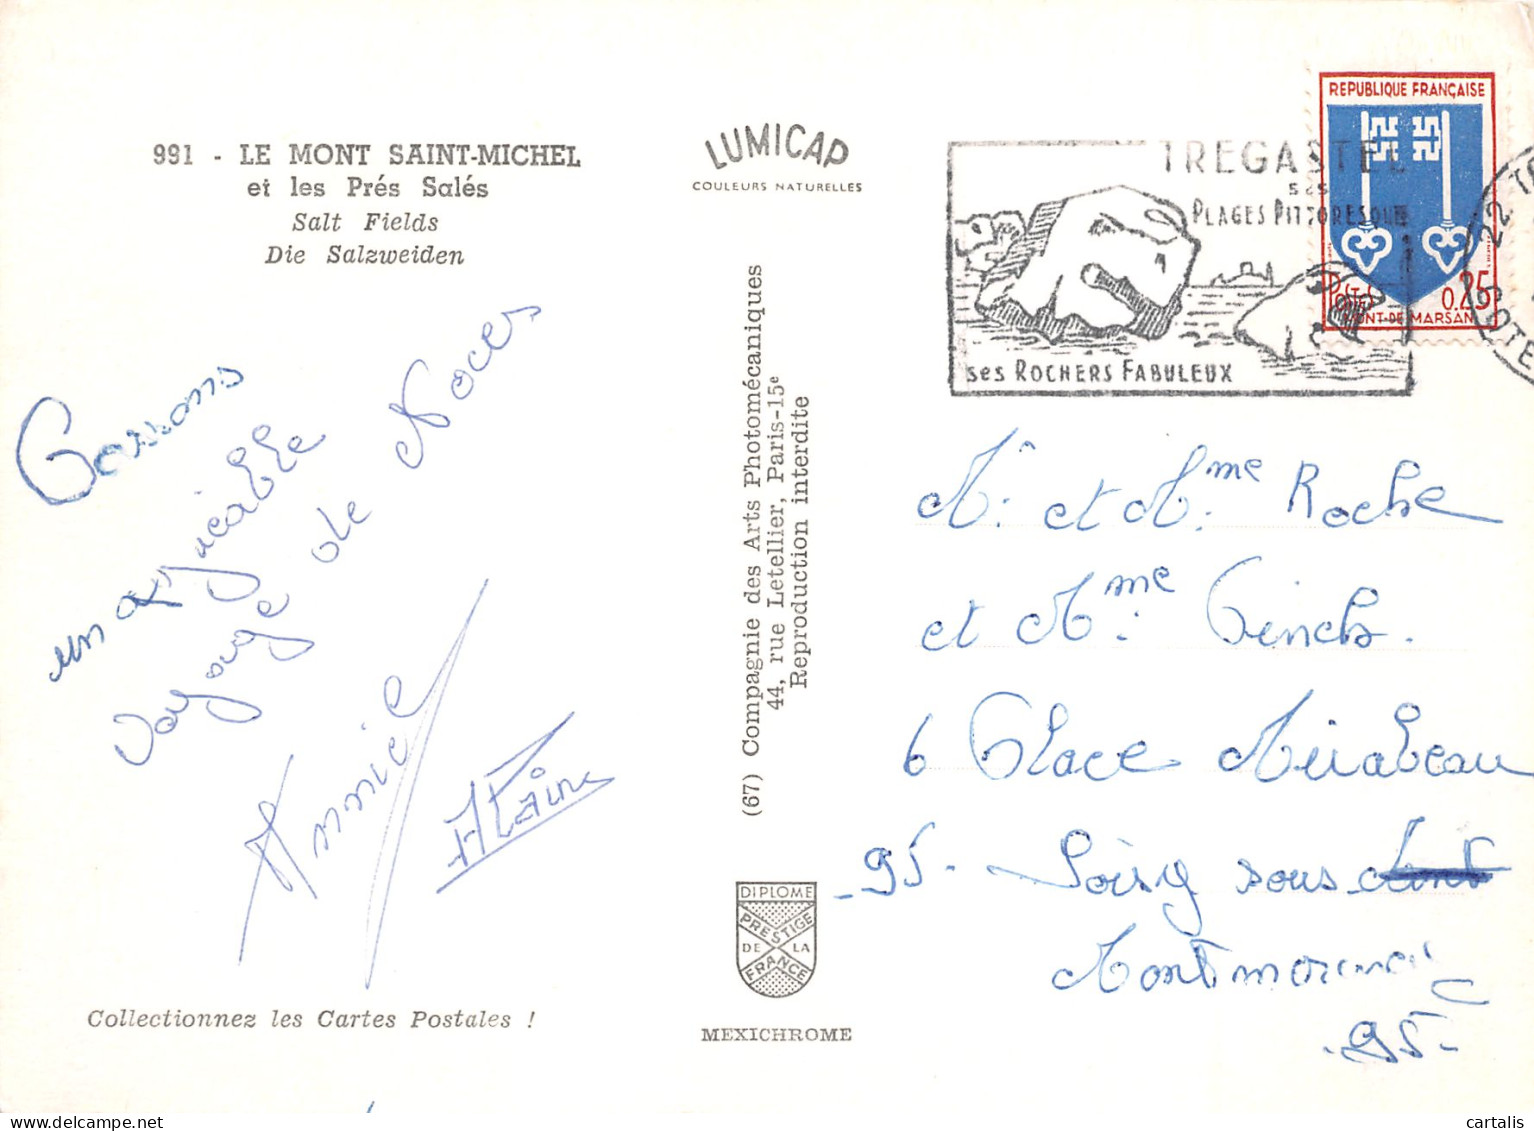 991 - LE MONT SAINT-MICHEL
et les Prés Salés
Salt Fields
Die Salzweiden
Passons
un agréable
voyage de Noces
Annick
Alain
Collectionnez les Cartes Postales !
LUMICAP
COULEURS NATURELLES
(67) Compagnie des Arts Photomécaniques
44, rue Letellier, Paris-15e
Reproduction interdite
DIPLOME
PRESTIGE
DE LA
FRANCE
MEXICHROME
TREGASTEL
ses
PLAGES PITTORESQUES
ses ROCHERS FABULEUX
REPUBLIQUE FRANÇAISE
POSTES
0,25
MONT-DE-MARSAN
22 TR
COTE
M. et Mme Roche
et Mme
6 Place Mirabeau
95 - Soisy sous
Montmorency
- 95 -
delcampe.net
cartalis